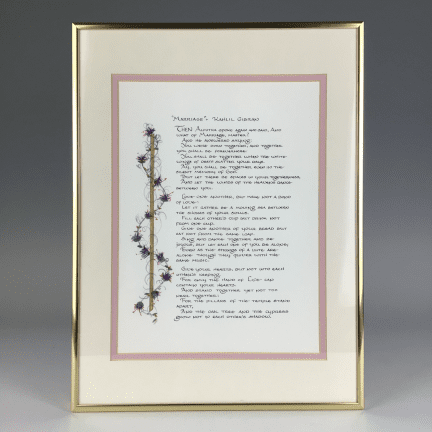 "Marriage" - Kahlil Gibran
Then Almitra spoke again and said, And
what of Marriage, master?
And he answered saying:
You were born together, and together
you shall be forevermore.
You shall be together when the white
wings of death scatter your days.
Ay, you shall be together even in the
silent memory of God.
But let there be spaces in your togetherness,
And let the winds of the heavens dance
between you.
Love one another, but make not a bond
of love:
Let it rather be a moving sea between
the shores of your souls.
Fill each other's cup but drink not
from one cup.
Give one another of your bread but
eat not from the same loaf.
Sing and dance together and be
joyous, but let each one of you be alone,
Even as the strings of a lute are
alone though they quiver with the
same music.
Give your hearts, but not into each
other's keeping.
For only the hand of Life can
contain your hearts.
And stand together yet not too
near together:
For the pillars of the temple stand
apart,
And the oak tree and the cypress
grow not in each other's shadow.